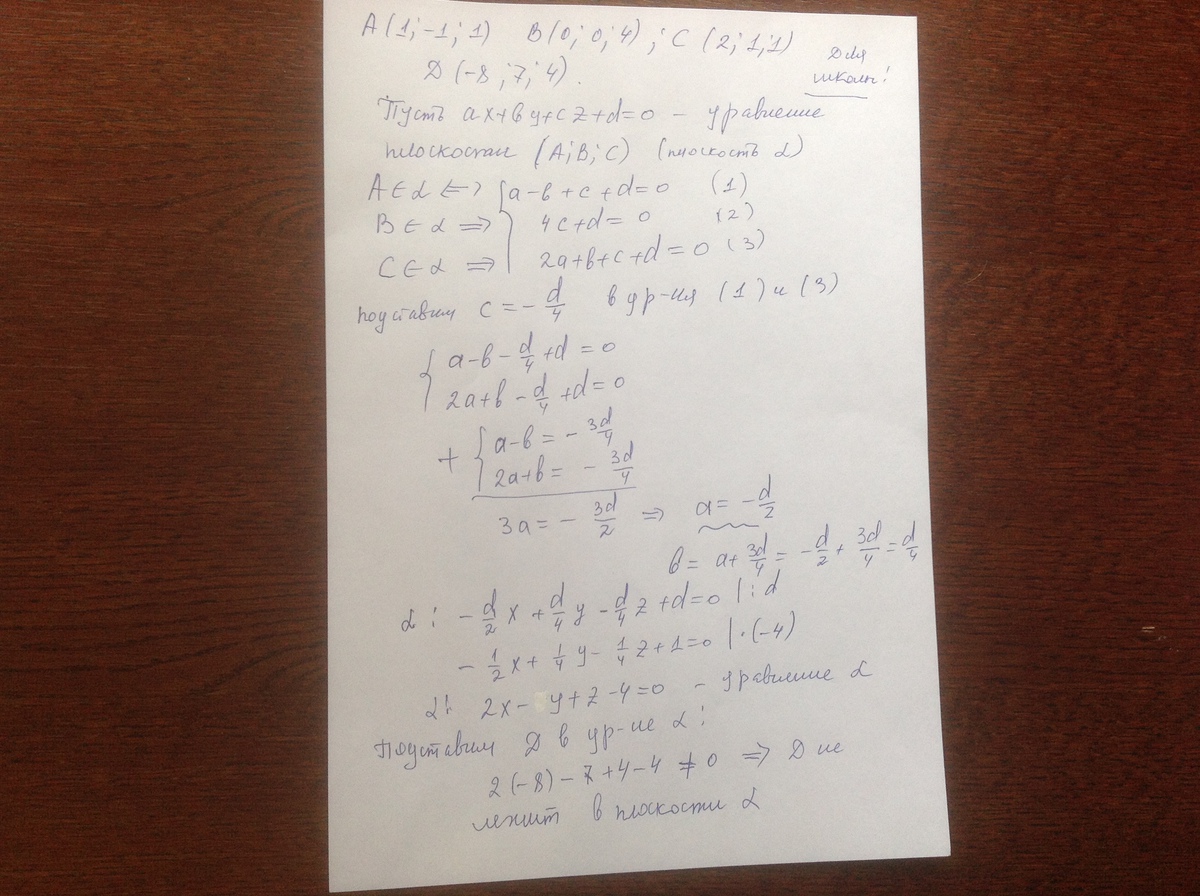 A (1; -1; 1) B (0; 0; 4) ; C (2; 1; 1)
Для
школы!
D (-8 ; 7; 4).
Пусть ax+by+cz+d=0 - уравнение
плоскости (A; B; C) (плоскость α)
A ∈ α <=> { a-b+c+d=0 (1)
B ∈ α => 4c+d=0 (2)
C ∈ α => 2a+b+c+d=0 (3)
подставим c = -d/4 в ур-ия (1) и (3)
{ a-b-d/4+d=0
2a+b-d/4+d=0
+ { a-b= -3d/4
2a+b= -3d/4
3a= -3d/2 => a= -d/2
b= a+3d/4= -d/2+3d/4=d/4
α: -d/2x+d/4y-d/4z+d=0 | : d
-1/2x+1/4y-1/4z+1=0 | ·(-4)
α: 2x-y+z-4=0 - уравнение α
Подставим D в ур-ие α:
2(-8)-7+4-4≠0 => D не
лежит в плоскости α